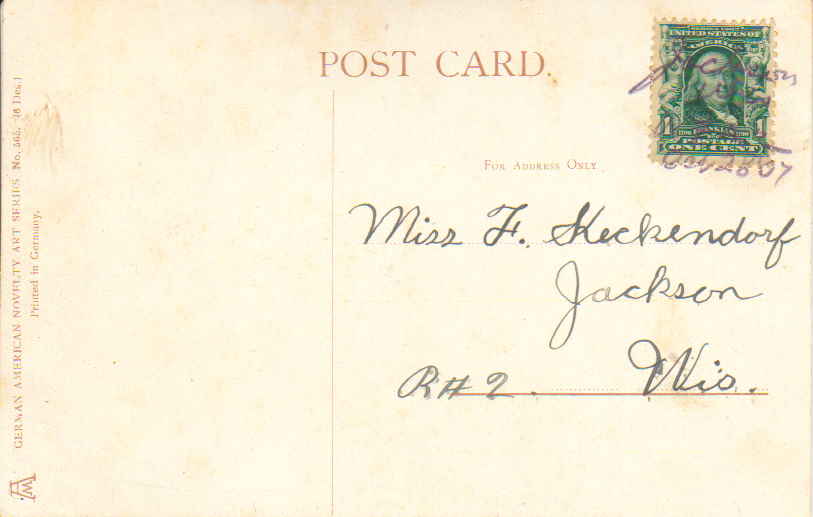 POST CARD.
SERIES 1902
UNITED STATES OF
AMERICA
1 FRANKLIN 1
POSTAGE
ONE CENT
07
FOR ADDRESS ONLY
Miss F. Heckendorf
Jackson
Wis.
R#2.
GERMAN AMERICAN NOVELTY ART SERIES No. 565.
Printed in Germany.